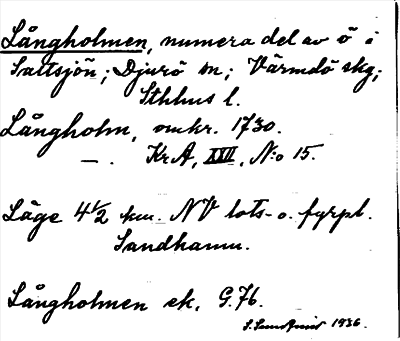 Långholmen, numera del av ö i
Saltsjön; Djurö sn; Värmdö skg;
Sthlms l.
Långholm, omkr. 1730.
— . KrA, XXII, N:o 15.
Läge 4 1/2 km. NV lots- o. fyrpl.
Sandhamn.
Långholmen ek. G.76.
1936.